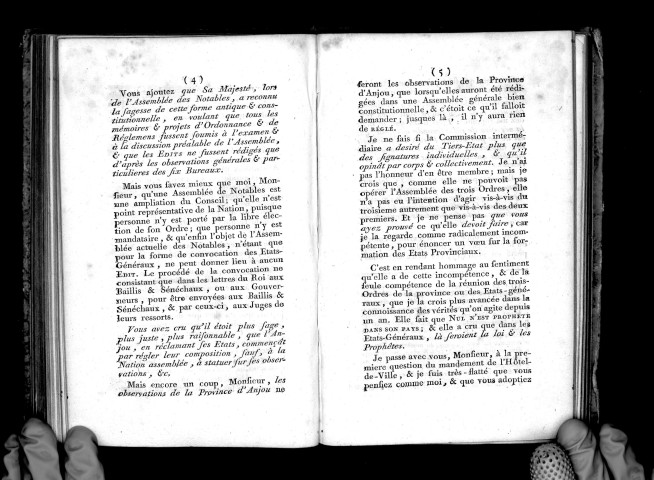 ( 4 )
Vous ajoutez que Sa Majesté, lors
de l'Assemblée des Notables, a reconnu
la sagesse de cette forme antique & cons-
titutionnelle, en voulant que tous les
mémoires & projets d'Ordonnance & de
Réglemens fussent soumis à l'examen &
à la discussion préalable de l'Assemblée,
& que les EDITS ne fussent rédigés que
d'après les observations générales & par-
ticulieres des six Bureaux.
Mais vous savez mieux que moi, Mon-
sieur, qu'une Assemblée de Notables est
une ampliation du Conseil; qu'elle n'est
point représentative de la Nation, puisque
personne n'y est porté par la libre élec-
tion de son Ordre; que personne n'y est
mandataire, & qu'enfin l'objet de l'Assem-
blée actuelle des Notables, n'étant que
pour la forme de convocation des Etats-
Généraux, ne peut donner lieu à aucun
EDIT. Le procédé de la convocation ne
consistant que dans les lettres du Roi aux
Baillis & Sénéchaux, ou aux Gouver-
neurs, pour être envoyées aux Baillis &
Sénéchaux, & par ceux-ci, aux Juges de
leurs ressorts.
Vous avez cru qu'il étoit plus sage,
plus juste, plus raisonnable, que l'An-
jou, en réclamant ses Etats, commençât
par régler leur composition, sauf, à la
Nation assemblée, à statuer sur ses obser-
vations, &c.
Mais encore un coup, Monsieur, les
observations de la Province d'Anjou ne
( 5 )
seront les observations de la Province
d'Anjou, que lorsqu'elles auront été rédi-
gées dans une Assemblée générale bien
constitutionnelle, & c'étoit ce qu'il falloit
demander; jusques là, il n'y aura rien
de RÉGLÉ.
Je ne sais si la Commission intermé-
diaire a desiré du Tiers-Etat plus que
des signatures individuelles, & qu'il
opinât par corps & collectivement. Je n'ai
pas l'honneur d'en être membre; mais je
crois que, comme elle ne pouvoit pas
opérer l'Assemblée des trois Ordres, elle
n'a pas eu l'intention d'agir vis-à-vis du
troisieme autrement que vis-à-vis des deux
premiers. Et je ne pense pas que vous
ayez prouvé ce qu'elle devoit faire; car
je la regarde comme radicalement incom-
pétente, pour énoncer un vœu sur la for-
mation des Etats Provinciaux.
C'est en rendant hommage au sentiment
qu'elle a de cette incompétence, & de la
seule compétence de la réunion des trois-
Ordres de la province ou des Etats-géné-
raux, que je la crois plus avancée dans la
connoissance des vérités qu'on agite depuis
un an. Elle sait que NUL N'EST PROPHETE
DANS SON PAYS; & elle a cru que dans les
Etats-Généraux, là seroient la loi & les
Prophêtes.
Je passe avec vous, Monsieur, à la pre-
miere question du mandement de l'Hôtel-
de-Ville, & je suis très-flatté que vous
pensiez comme moi, & que vous adoptiez